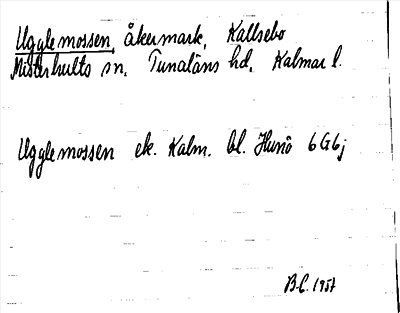 Ugglemossen, åkermark, Kallsebo
Misterhults sn, Tunaläns hd, Kalmar l.
Ugglemossen ek. Kalm. bl. Hunö 6G6j
B.C. 1957